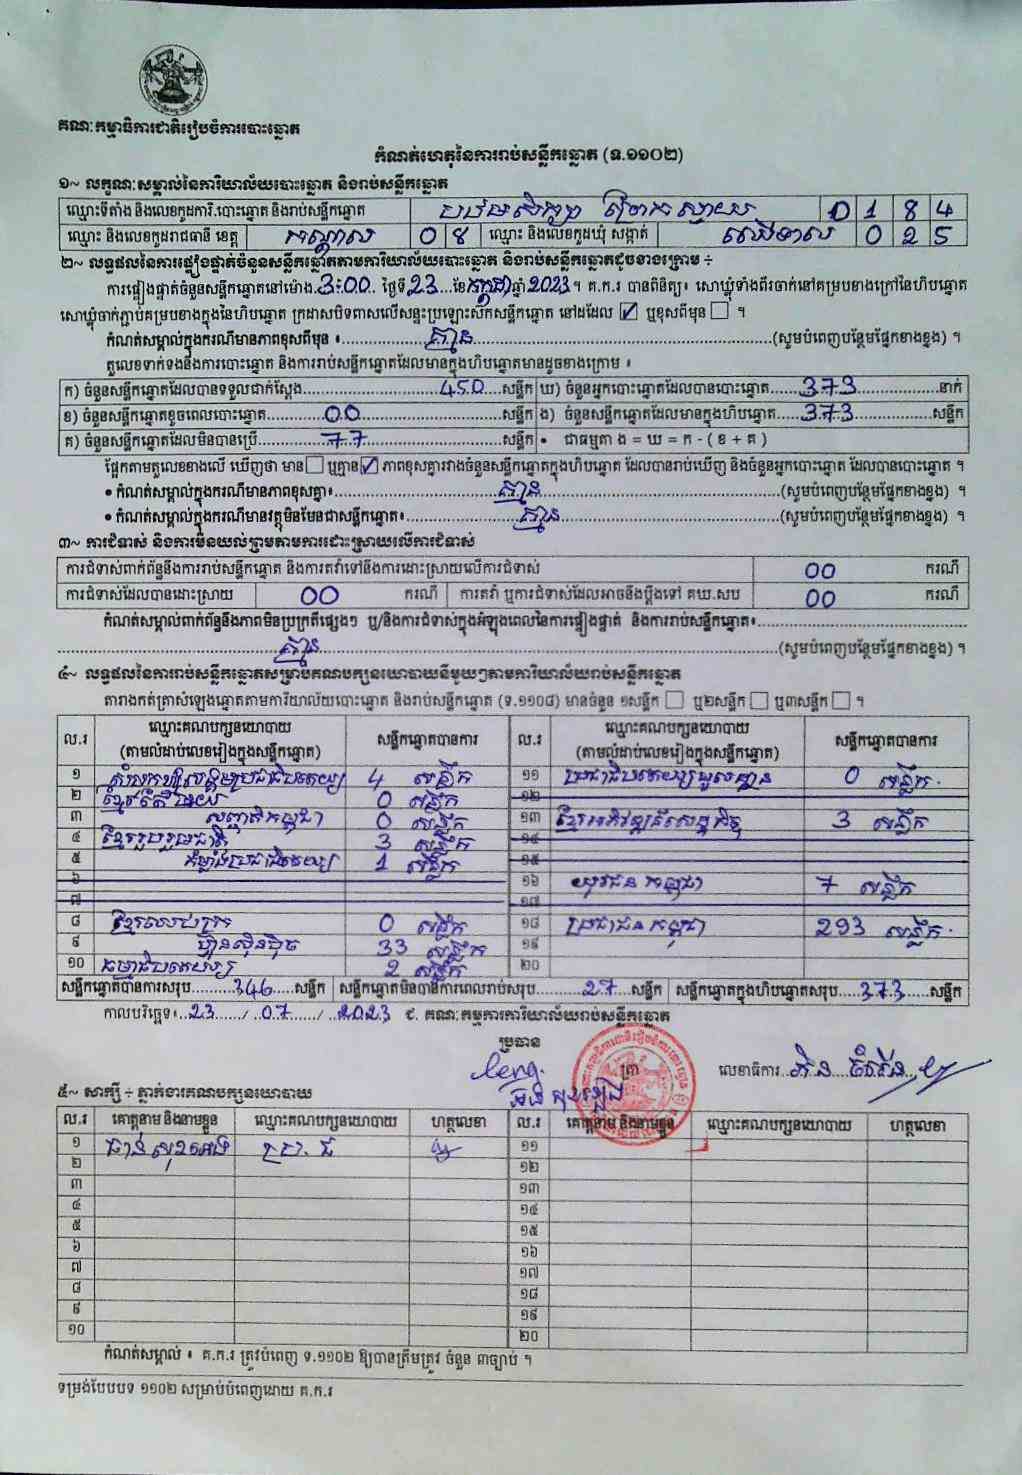 គណៈកម្មាធិការជាតិរៀបចំការបោះឆ្នោត
កំណត់ហេតុនៃការរាប់សន្លឹកឆ្នោត (ទ.១១០២)
១~ លក្ខណៈសម្គាល់នៃការិយាល័យបោះឆ្នោត និងរាប់សន្លឹកឆ្នោត
ឈ្មោះទីតាំង និងលេខកូដការិ.បោះឆ្នោត និងរាប់សន្លឹកឆ្នោត បឋមសិក្សា ព្រែកស្វាយ 0 1 8 4
ឈ្មោះ និងលេខកូដរាជធានី ខេត្ត កណ្តាល 0 8 ឈ្មោះ និងលេខកូដឃុំ សង្កាត់ 0 2 5
២~ លទ្ធផលនៃការផ្ទៀងផ្ទាត់ចំនួនសន្លឹកឆ្នោតតាមការិយាល័យបោះឆ្នោត និងរាប់សន្លឹកឆ្នោតដូចខាងក្រោម ÷
ការផ្ទៀងផ្ទាត់ចំនួនសន្លឹកឆ្នោតនៅម៉ោង 3:00 ថ្ងៃទី 23 ខែ កក្កដា ឆ្នាំ 2023 ។ គ.ក.រ បានពិនិត្យ៖ សោឃ្លុំទាំងពីរចាក់នៅគម្របខាងក្រៅនៃហិបឆ្នោត
សោឃ្លុំចាក់ភ្ជាប់គម្របខាងក្នុងនៃហិបឆ្នោត ក្រដាសបិទពាសលើសន្ទះប្រឡោះស៊កសន្លឹកឆ្នោត នៅដដែល ☑ ឬខុសពីមុន ☐ ។
កំណត់សម្គាល់ក្នុងករណីមានភាពខុសពីមុន ៖ គ្មាន (សូមបំពេញបន្ថែមផ្នែកខាងខ្នង) ។
តួលេខទាក់ទងនឹងការបោះឆ្នោត និងការរាប់សន្លឹកឆ្នោតដែលមានក្នុងហិបឆ្នោតមានដូចខាងក្រោម ៖
ក) ចំនួនសន្លឹកឆ្នោតដែលបានទទួលជាក់ស្តែង 450 សន្លឹក ឃ) ចំនួនអ្នកបោះឆ្នោតដែលបានបោះឆ្នោត 373 នាក់
ខ) ចំនួនសន្លឹកឆ្នោតខូចពេលបោះឆ្នោត 00 សន្លឹក ង) ចំនួនសន្លឹកឆ្នោតដែលមានក្នុងហិបឆ្នោត 373 សន្លឹក
គ) ចំនួនសន្លឹកឆ្នោតដែលមិនបានប្រើ 77 សន្លឹក • ជាធម្មតា ង = ឃ = ក - ( ខ + គ )
ផ្អែកតាមតួលេខខាងលើ ឃើញថា មាន ☐ ឬគ្មាន ☑ ភាពខុសគ្នារវាងចំនួនសន្លឹកឆ្នោតក្នុងហិបឆ្នោត ដែលបានរាប់ឃើញ និងចំនួនអ្នកបោះឆ្នោត ដែលបានបោះឆ្នោត ។
• កំណត់សម្គាល់ក្នុងករណីមានភាពខុសគ្នា៖ គ្មាន (សូមបំពេញបន្ថែមផ្នែកខាងខ្នង) ។
• កំណត់សម្គាល់ក្នុងករណីមានវត្ថុមិនមែនជាសន្លឹកឆ្នោត៖ គ្មាន (សូមបំពេញបន្ថែមផ្នែកខាងខ្នង) ។
៣~ ការជំទាស់ និងការមិនយល់ព្រមតាមការដោះស្រាយលើការជំទាស់
ការជំទាស់ពាក់ព័ន្ធនឹងការរាប់សន្លឹកឆ្នោត និងការតវ៉ាទៅនឹងការដោះស្រាយលើការជំទាស់ 00 ករណី
ការជំទាស់ដែលបានដោះស្រាយ 00 ករណី ការតវ៉ា ឬការជំទាស់ដែលអាចនឹងប្តឹងទៅ គឃ.សប 00 ករណី
កំណត់សម្គាល់ពាក់ព័ន្ធនឹងភាពមិនប្រក្រតីផ្សេងៗ ឬ/និងការជំទាស់ក្នុងអំឡុងពេលនៃការផ្ទៀងផ្ទាត់ និងការរាប់សន្លឹកឆ្នោត៖
គ្មាន (សូមបំពេញបន្ថែមផ្នែកខាងខ្នង) ។
៤~ លទ្ធផលនៃការរាប់សន្លឹកឆ្នោតសម្រាប់គណបក្សនយោបាយនីមួយៗតាមការិយាល័យរាប់សន្លឹកឆ្នោត
តារាងកត់ត្រាសំឡេងឆ្នោតតាមការិយាល័យបោះឆ្នោត និងរាប់សន្លឹកឆ្នោត (ទ.១១០៨) មានចំនួន ១សន្លឹក ☐ ឬ២សន្លឹក ☐ ឬ៣សន្លឹក ☐ ។
ល.រ ឈ្មោះគណបក្សនយោបាយ (តាមលំដាប់លេខរៀងក្នុងសន្លឹកឆ្នោត) សន្លឹកឆ្នោតបានការ ល.រ ឈ្មោះគណបក្សនយោបាយ (តាមលំដាប់លេខរៀងក្នុងសន្លឹកឆ្នោត) សន្លឹកឆ្នោតបានការ
១ សំបុកឃ្មុំសង្គមប្រជាធិបតេយ្យ 4 សន្លឹក ១១ ប្រជាធិបតេយ្យមូលដ្ឋាន 0 សន្លឹក
២ ខ្មែរតែមួយ 0 សន្លឹក ១២
៣ សញ្ជាតិកម្ពុជា 0 សន្លឹក ១៣ ខ្មែរអភិវឌ្ឍន៍សេដ្ឋកិច្ច 3 សន្លឹក
៤ ខ្មែររួបរួមជាតិ 3 សន្លឹក ១៤
៥ កម្លាំងប្រជាធិបតេយ្យ 1 សន្លឹក ១៥
៦ ១៦ យុវជនកម្ពុជា 7 សន្លឹក
៧ ១៧
៨ ខ្មែរឈប់ក្រ 0 សន្លឹក ១៨ ប្រជាជនកម្ពុជា 293 សន្លឹក
៩ ហ៊្វុនស៊ិនប៉ិច 33 សន្លឹក ១៩
១០ ធម្មាធិបតេយ្យ 2 សន្លឹក ២០
សន្លឹកឆ្នោតបានការសរុប 346 សន្លឹក សន្លឹកឆ្នោតមិនបានការពេលរាប់សរុប 27 សន្លឹក សន្លឹកឆ្នោតក្នុងហិបឆ្នោតសរុប 373 សន្លឹក
កាលបរិច្ឆេទ៖ 23 / 07 / 2023 ៩. គណៈកម្មការការិយាល័យរាប់សន្លឹកឆ្នោត
ប្រធាន ត្រា លេខាធិការ
Leng
៥~ សាក្សី ÷ ភ្នាក់ងារគណបក្សនយោបាយ
ល.រ គោត្តនាម និងនាមខ្លួន ឈ្មោះគណបក្សនយោបាយ ហត្ថលេខា ល.រ គោត្តនាម និងនាមខ្លួន ឈ្មោះគណបក្សនយោបាយ ហត្ថលេខា
១ ប្រ.ជ ១១
២ ១២
៣ ១៣
៤ ១៤
៥ ១៥
៦ ១៦
៧ ១៧
៨ ១៨
៩ ១៩
១០ ២០
កំណត់សម្គាល់ ៖ គ.ក.រ ត្រូវបំពេញ ទ.១១០២ ឱ្យបានត្រឹមត្រូវ ចំនួន ៣ច្បាប់ ។
ទម្រង់បែបបទ ១១០២ សម្រាប់បំពេញដោយ គ.ក.រ